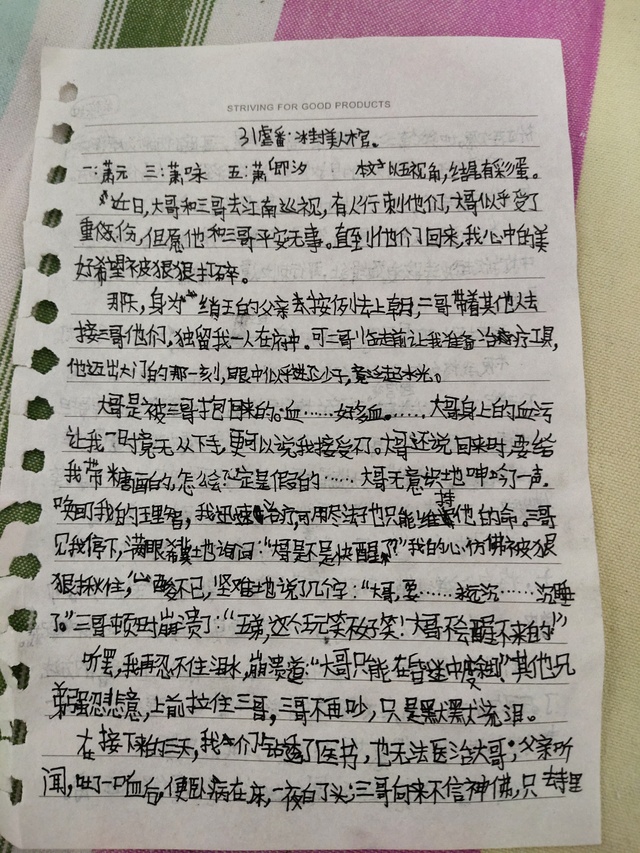 STRIVING FOR GOOD PRODUCTS
31虐番·冰封美人棺。
一:萧元 三:萧咏 五:萧卿汐 本文以五视角,结尾有彩蛋。
近日,大哥和三哥去江南巡视,有人行刺他们,大哥似乎受了
重伤,但愿他和三哥平安无事。直到他们回来,我心中的美
好希望被狠狠打碎。
那天,身为绡王的父亲去按例去上朝,二哥带着其他人去
接三哥他们,独留我一人在府中。可二哥临走前让我准备治疗工具,
他迈出大门的那一刻,眼中似乎进了沙子,竟泛起水光。
大哥是被三哥抱回来的。血……好多血……,大哥身上的血污
让我一时竟无从下手,更可以说我接受不了。大哥还说回来时要给
我带糖画的,怎么会?定是假的……大哥无意识地呻吟了一声,
唤回了我的理智,我迅速治疗,可用尽法子也只能维持他的命。三哥
见我停下,满眼希冀地询问:“大哥是不是快醒了?”我的心仿佛被狠
狠揪住,酸不已,坚难地说了几个字:“大哥,要……永远沉……沉睡
了。”三哥顿时崩溃了:“五弟,这个玩笑不好笑!大哥不会醒不来的!”
听罢,我再忍不住泪水,崩溃道:“大哥只能在昏迷中度过!”其他兄
弟强忍悲意,上前拉住三哥,三哥不再吵,只是默默流泪。
在接下来的三天,我们钻透了医书,也无法医治大哥;父亲听
闻,吐了一口血后,便卧病在床,一夜白了头;三哥向来不信神佛,只